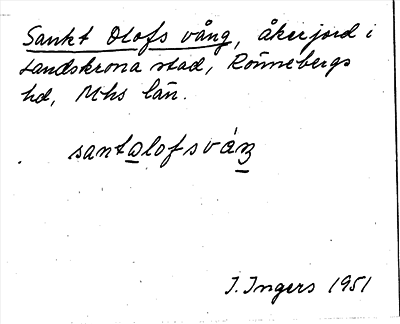 Sankt Olofs vång, åkerjord i
Landskrona stad, Rönnebergs
hd, Mhs län.
santalofsváŋ
I. Ingers 1951